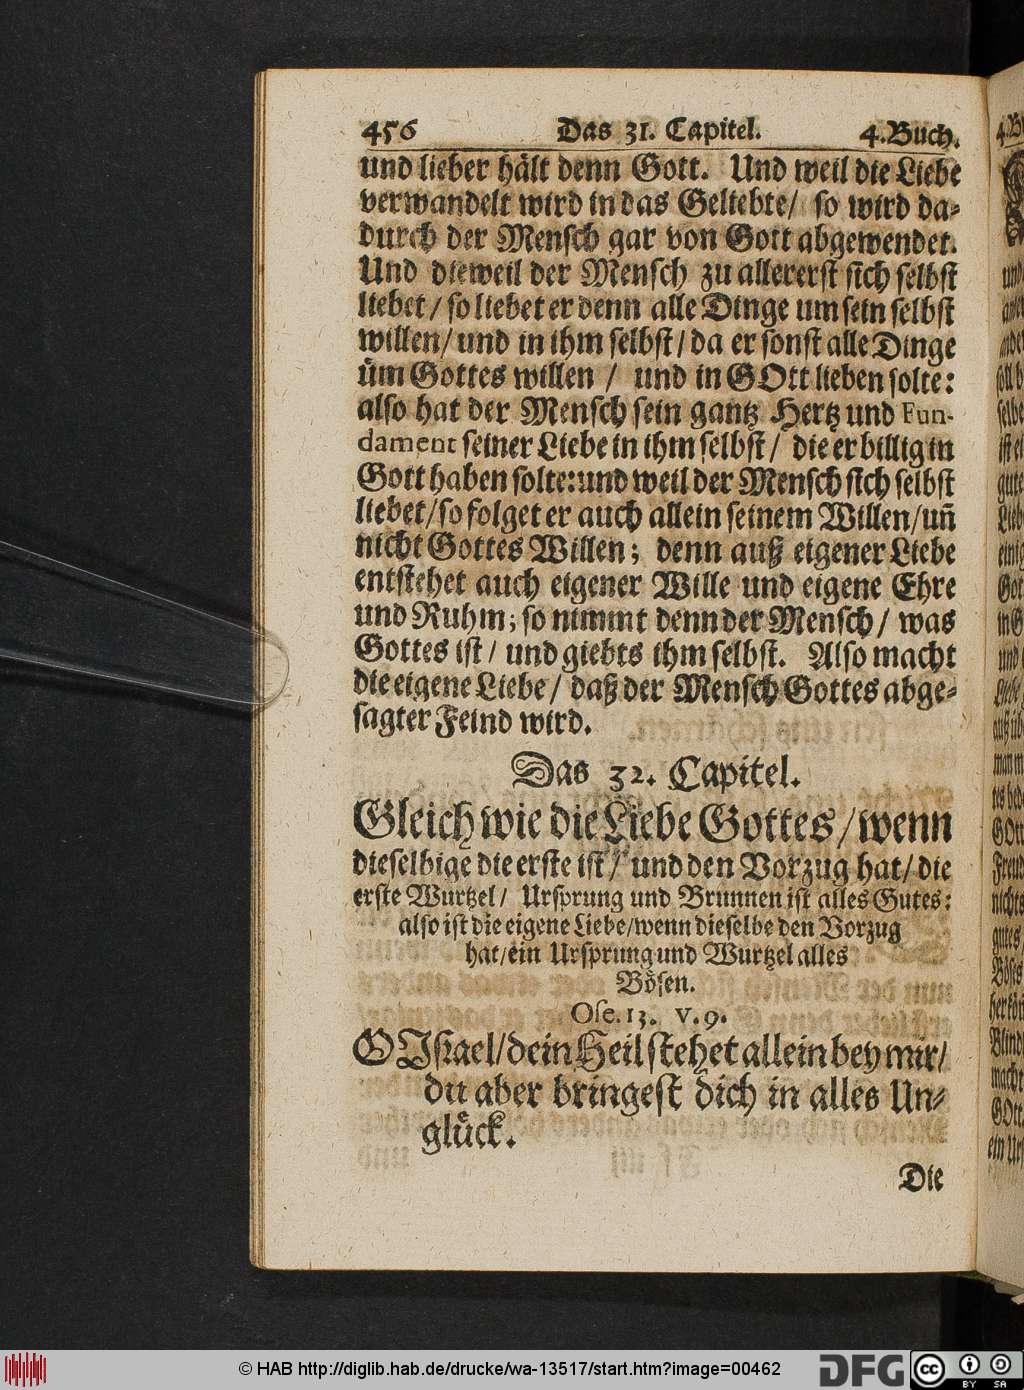 456 Das 31. Capitel. 4. Buch.
und lieber hält denn Gott. Und weil die Liebe
verwandelt wird in das Geliebte/ so wird da-
durch der Mensch gar von Gott abgewendet.
Und dieweil der Mensch zu allererst sich selbst
liebet/ so liebet er denn alle Dinge um sein selbst
willen/ und in ihm selbst/ da er sonst alle Dinge
üm Gottes willen / und in GOtt lieben solte:
also hat der Mensch sein gantz Hertz und Fun-
dament seiner Liebe in ihm selbst/ die er billig in
Gott haben solte: und weil der Mensch sich selbst
liebet/ so folget er auch allein seinem Willen/ uñ
nicht Gottes Willen; denn auß eigener Liebe
entstehet auch eigener Wille und eigene Ehre
und Ruhm; so nimmt denn der Mensch/ was
Gottes ist/ und giebts ihm selbst. Also macht
die eigene Liebe/ daß der Mensch Gottes abge-
sagter Feind wird.
Das 32. Capitel.
Gleich wie die Liebe Gottes/ wenn
dieselbige die erste ist/ und den Vorzug hat/ die
erste Wurtzel/ Ursprung und Brunnen ist alles Gutes:
also ist die eigene Liebe/ wenn dieselbe den Vorzug
hat/ ein Ursprung und Wurtzel alles
Bösen.
Ose. 13. v. 9.
O Israel/ dein Heil stehet allein bey mir/
du aber bringest dich in alles Un-
glück.
Die
© HAB http://diglib.hab.de/drucke/wa-13517/start.htm?image=00462
DFG
cc BY SA